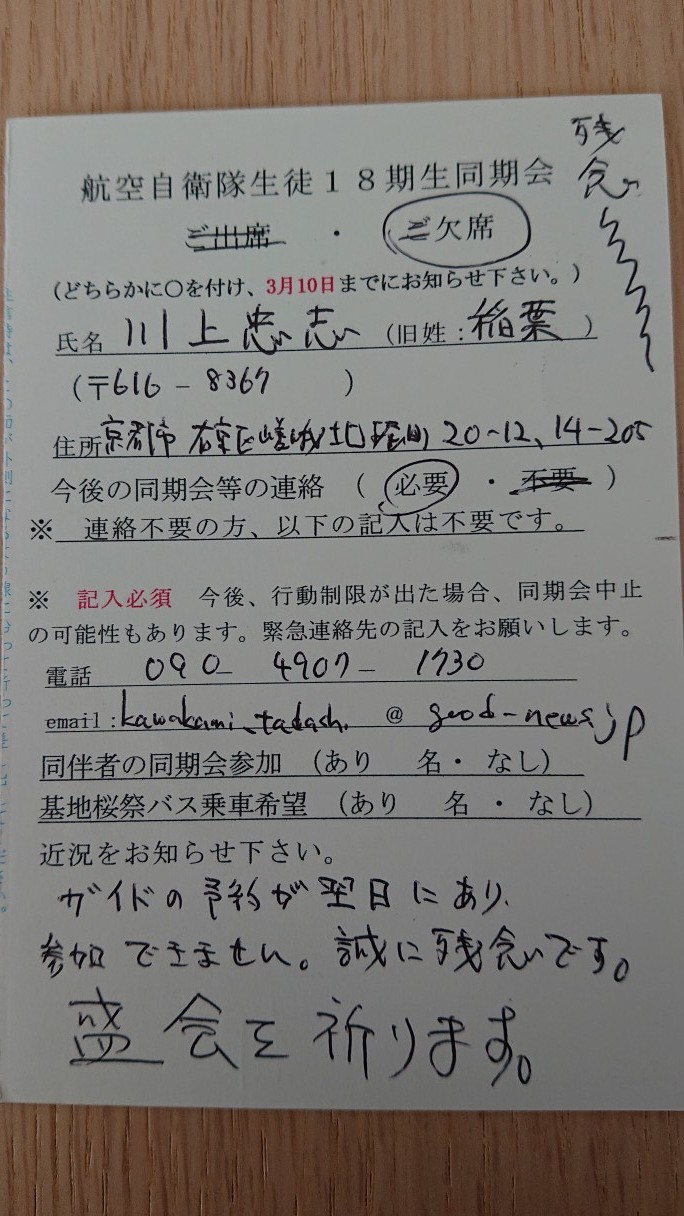 残念
航空自衛隊生徒18期生同期会
ご出席 ・ ご欠席
(どちらかに〇を付け、3月10日までにお知らせ下さい。)
氏名 川上忠志 (旧姓:稲葉 )
(〒616-8367 )
住所 京都市右京区嵯峨北堀町20-12、14-205
今後の同期会等の連絡 ( 必要 ・ 不要 )
※ 連絡不要の方、以下の記入は不要です。
※ 記入必須 今後、行動制限が出た場合、同期会中止
の可能性もあります。緊急連絡先の記入をお願いします。
電話 090-4907-1730
email:kawakami.tadashi.@good-news.jp
同伴者の同期会参加 (あり 名・なし)
基地桜祭バス乗車希望 (あり 名・なし)
近況をお知らせ下さい。
ガイドの予約が翌日にあり、
参加できません。誠に残念です。
盛会を祈ります。